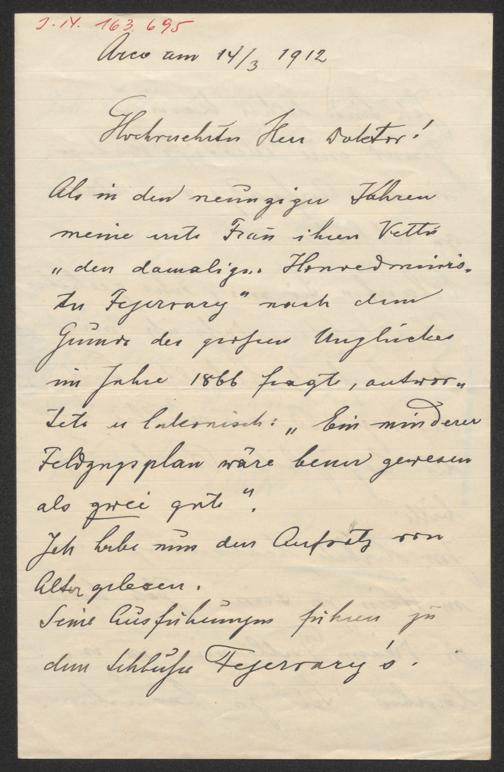 J.N. 163.695
Arco am 14/3 1912
Hochverehrter Herr Doktor!
Als in den neunziger Jahren
meine erste Frau ihren Vetter
„den damaligen Honvedminis-
ter Fejervary" nach dem
Grunde des großen Unglückes
im Jahre 1866 fragte, antwor-
tete er lakonisch: „Ein minderer
Feldzugsplan wäre besser gewesen
als zwei gute".
Ich habe nun den Aufsatz von
Alter gelesen.
Seine Ausführungen führen zu
dem Schluße Fejervary's.